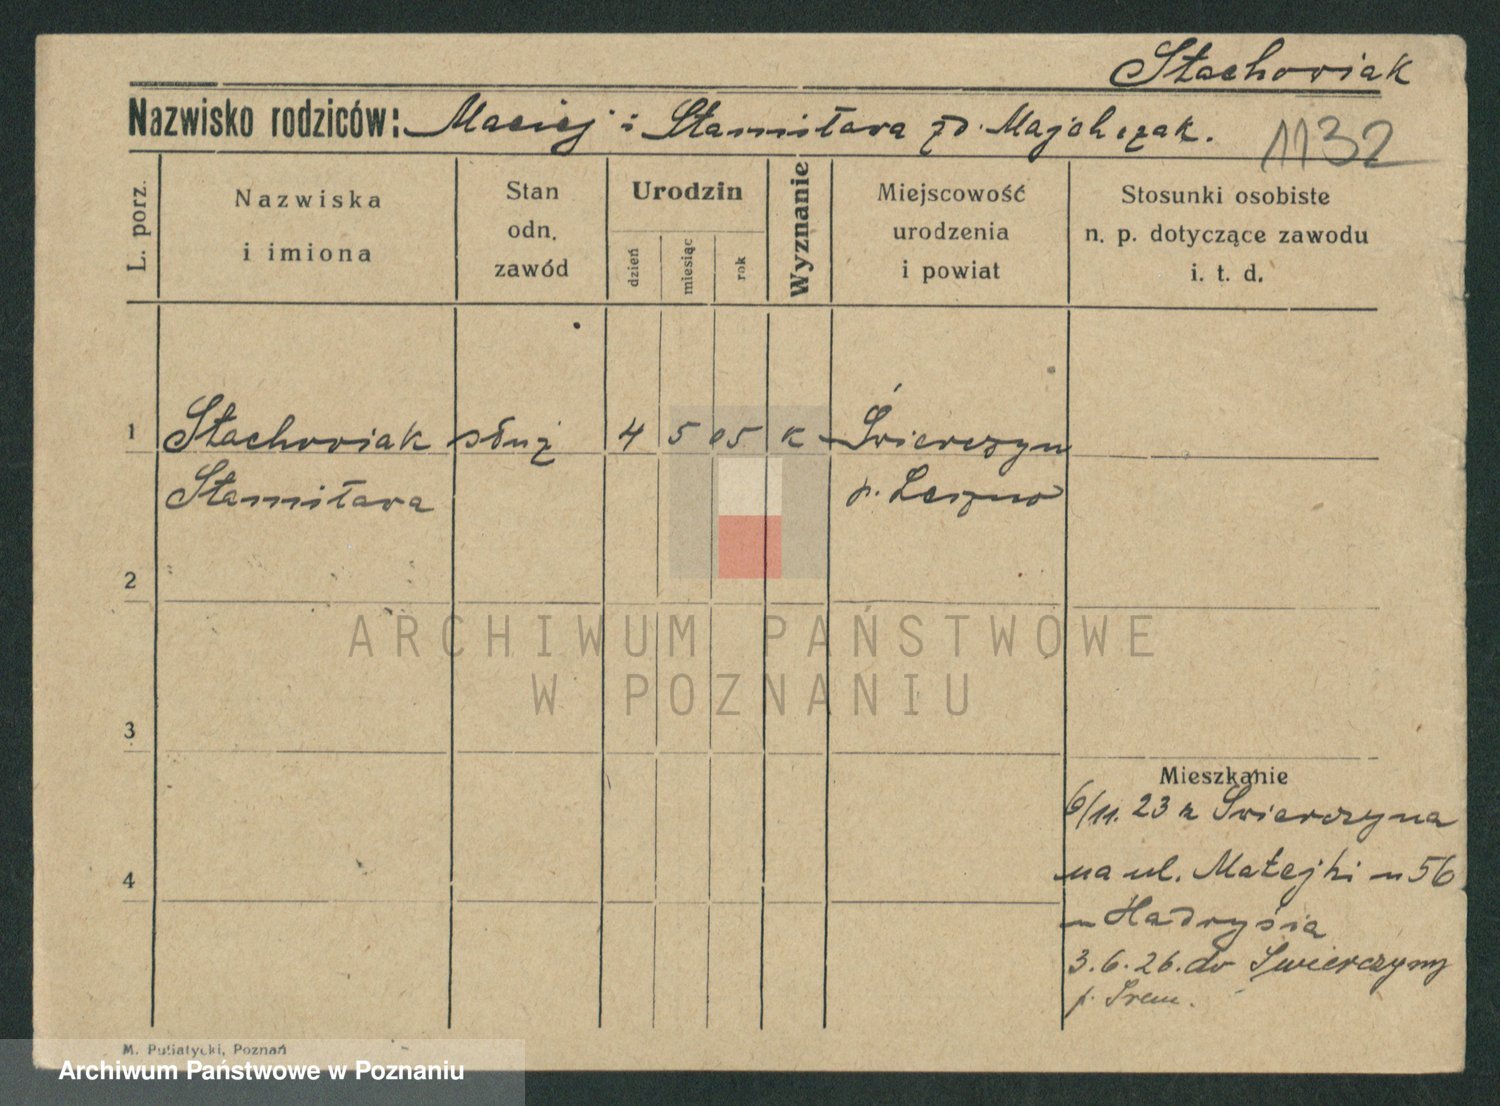 Stachowiak
Nazwisko rodziców: Maciej i Stanisława zd. Majchrzak.
1132
L. porz.
Nazwiska
i imiona
Stan
odn.
zawód
Urodzin
dzień
miesiąc
rok
Wyznanie
Miejscowość
urodzenia
i powiat
Stosunki osobiste
n. p. dotyczące zawodu
i. t. d.
1 Stachowiak służ 4 5 05 K Świerczyn
Stanisława p. Leszno
2
3
4
Mieszkanie
6/11. 23 z Świerczyna
na ul. Matejki n 56
u Hadrysia
3.6.26. do Świerczyny
p. Śrem.
M. Putiatycki, Poznań
ARCHIWUM PAŃSTWOWE
W POZNANIU
Archiwum Państwowe w Poznaniu